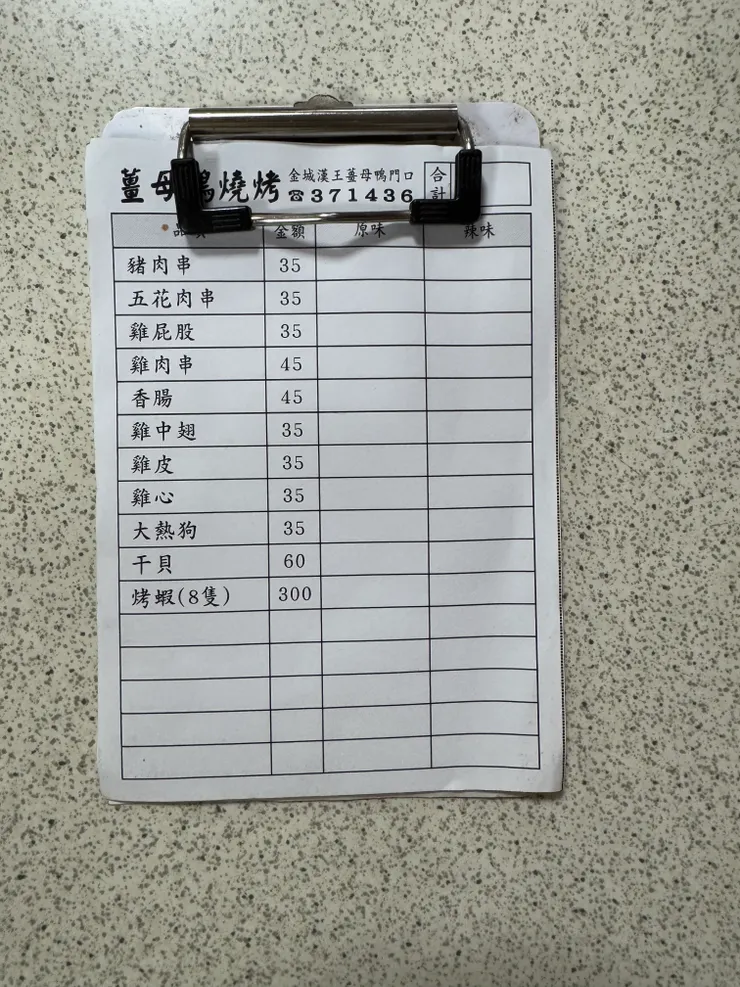 薑母鴨燒烤 金城漢王薑母鴨門口 合計
☎371436
金額 原味 辣味
豬肉串 35
五花肉串 35
雞屁股 35
雞肉串 45
香腸 45
雞中翅 35
雞皮 35
雞心 35
大熱狗 35
干貝 60
烤蝦(8隻) 300